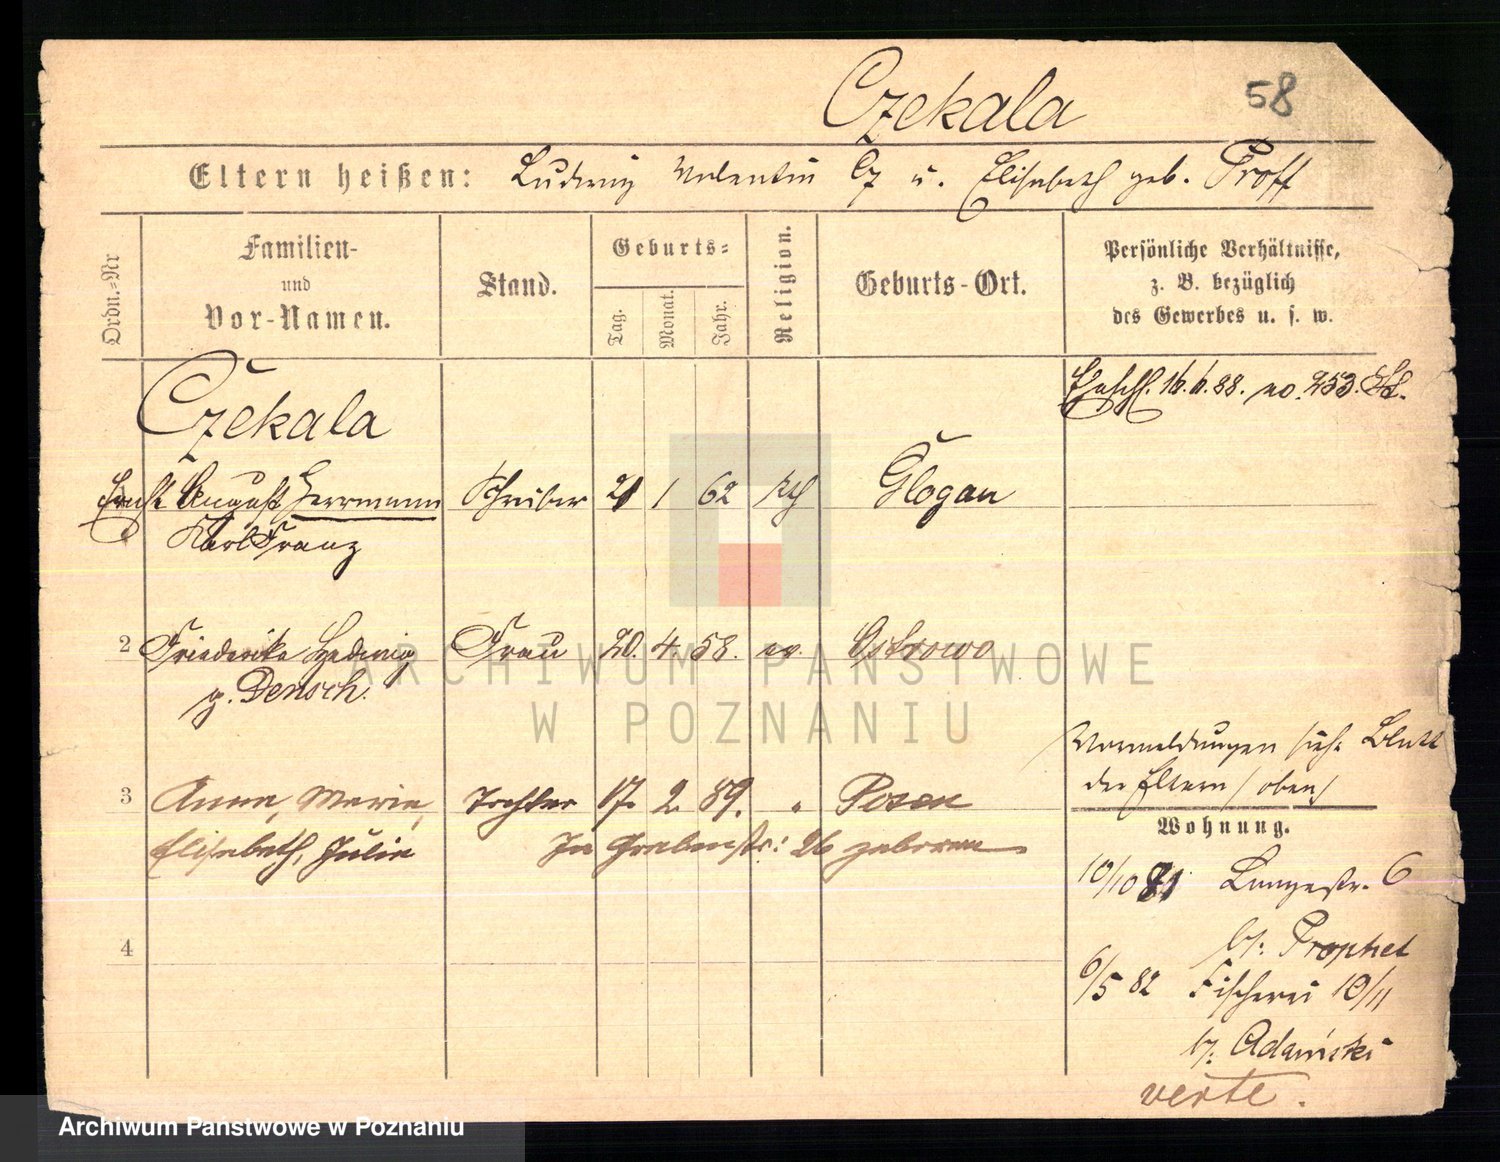 Czekala 58
Eltern heißen: Ludwig Valentin Cz u. Elisabeth geb. Proff
Ordn.-Nr
Familien-
und
Vor-Namen.
Stand.
Geburts-
Tag.
Monat.
Jahr.
Religion.
Geburts-Ort.
Persönliche Verhältnisse,
z. B. bezüglich
des Gewerbes u. s. w.
16.6.88. no. 253.
Czekala
Ernst August Herrmann Schreiber 21 1 62 kth Glogau
Karl Franz
2 Friederike Hedwig Frau 20. 4. 58. ev. Ostrowo
g. Densch.
Vormeldungen siehe Blatt
der Eltern (oben)
3 Anna, Maria, Tochter 17. 2. 89. " Posen
Elisabeth, Julie In Grabenstr: 26 geboren
Wohnung.
10/10 81 Langestr. 6
b/: Prophet
4
6/5 82 Fischerei 10/11
b/: Adamski
verte.
ARCHIWUM PAŃSTWOWE
W POZNANIU
Archiwum Państwowe w Poznaniu